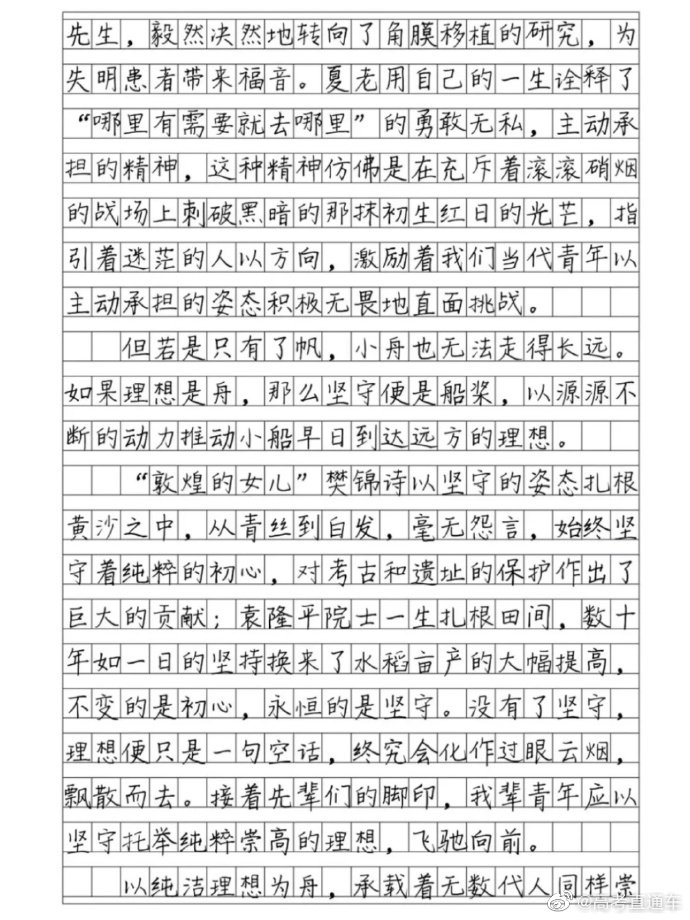 先生，毅然决然地转向了角膜移植的研究，为
失明患者带来福音。夏老用自己的一生诠释了
“哪里有需要就去哪里”的勇敢无私，主动承
担的精神，这种精神仿佛是在充斥着滚滚硝烟
的战场上刺破黑暗的那抹初生红日的光芒，指
引着迷茫的人以方向，激励着我们当代青年以
主动承担的姿态积极无畏地直面挑战。
但若是只有了帆，小舟也无法走得长远。
如果理想是舟，那么坚守便是船桨，以源源不
断的动力推动小船早日到达远方的理想。
“敦煌的女儿”樊锦诗以坚守的姿态扎根
黄沙之中，从青丝到白发，毫无怨言，始终坚
守着纯粹的初心，对考古和遗址的保护作出了
巨大的贡献；袁隆平院士一生扎根田间，数十
年如一日的坚持换来了水稻亩产的大幅提高，
不变的是初心，永恒的是坚守。没有了坚守，
理想便只是一句空话，终究会化作过眼云烟，
飘散而去。接着先辈们的脚印，我辈青年应以
坚守托举纯粹崇高的理想，飞驰向前。
以纯洁理想为舟，承载着无数代人同样崇
@高考直通车